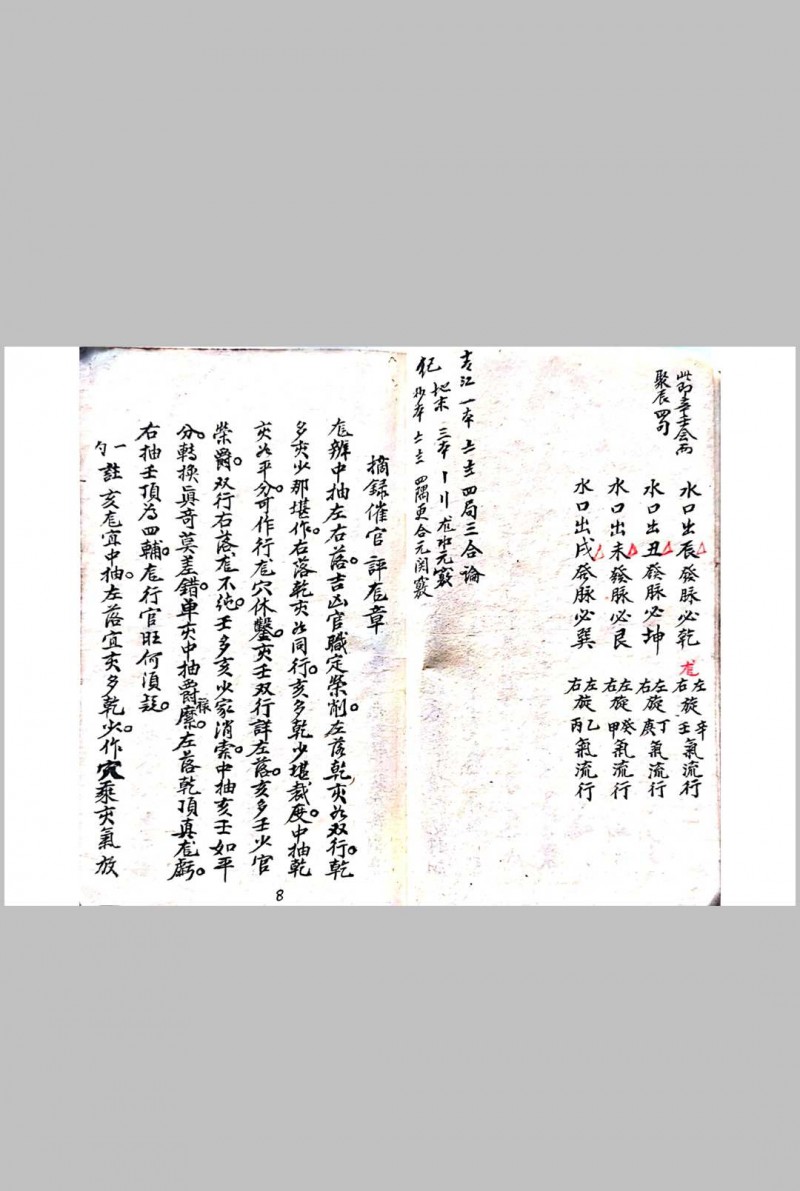 此即辛壬会而
聚辰四句
水口出辰發脉必乾 龙 左旋辛 右旋壬 氣流行
水口出丑發脉必坤 左旋丁 右旋庚 氣流行
水口出未發脉必艮 左旋癸 右旋甲 氣流行
水口出戌發脉必巽 左旋乙 右旋丙 氣流行
一本 四局三合論
三本 龙水元竅
四隅更合元関竅
摘録催官評龙章
龙辨中抽左右落。吉凶官職定榮削。左落乾亥如双行。乾
多亥少那堪作。右落乾亥如同行。亥多乾少堪裁度。中抽乾
亥如平分。可作行龙穴休鑿。亥壬双行詳左落。亥多壬少官
榮爵。双行右落龙不纯。壬多亥少家消索。中抽亥壬如平
分。轉換眞奇莫差錯。单亥中抽爵禄縻。左落乾頂真龙虧。
右抽壬頂為四輔。龙行官旺何須疑。
註 亥龙宜中抽。左落宜亥多乾少。作穴乘亥氣放
8